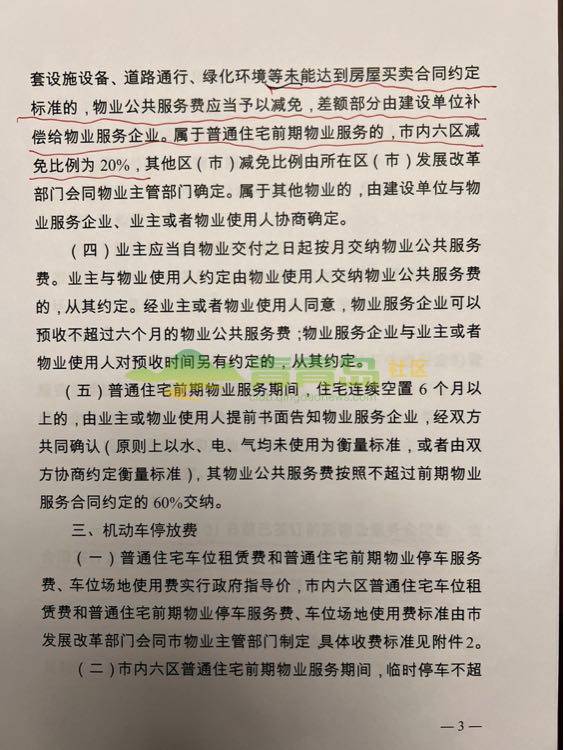 套设施设备、道路通行、绿化环境等未能达到房屋买卖合同约定
标准的，物业公共服务费应当予以减免，差额部分由建设单位补
偿给物业服务企业。属于普通住宅前期物业服务的，市内六区减
免比例为 20%，其他区（市）减免比例由所在区（市）发展改革
部门会同物业主管部门确定。属于其他物业的，由建设单位与物
业服务企业、业主或者物业使用人协商确定。
（四）业主应当自物业交付之日起按月交纳物业公共服务
费。业主与物业使用人约定由物业使用人交纳物业公共服务费
的，从其约定。经业主或者物业使用人同意，物业服务企业可以
预收不超过六个月的物业公共服务费；物业服务企业与业主或者
物业使用人对预收时间另有约定的，从其约定。
（五）普通住宅前期物业服务期间，住宅连续空置 6 个月以
上的，由业主或物业使用人提前书面告知物业服务企业，经双方
共同确认（原则上以水、电、气均未使用为衡量标准，或者由双
方协商约定衡量标准），其物业公共服务费按照不超过前期物业
服务合同约定的 60%交纳。
三、机动车停放费
（一）普通住宅车位租赁费和普通住宅前期物业停车服务
费、车位场地使用费实行政府指导价，市内六区普通住宅车位租
赁费和普通住宅前期物业停车服务费、车位场地使用费标准由市
发展改革部门会同市物业主管部门制定，具体收费标准见附件 2。
（二）市内六区普通住宅前期物业服务期间，临时停车不超
— 3 —
青青岛
社区